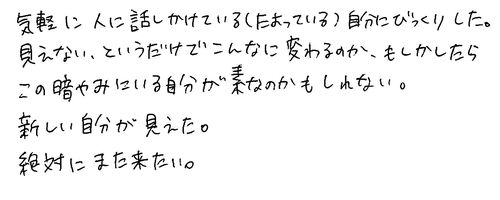 気軽に人に話しかけている(たよっている)自分にびっくりした。
見えない、というだけでこんなに変わるのか、もしかしたら
この暗やみにいる自分が素なのかもしれない。
新しい自分が見えた。
絶対にまた来たい。